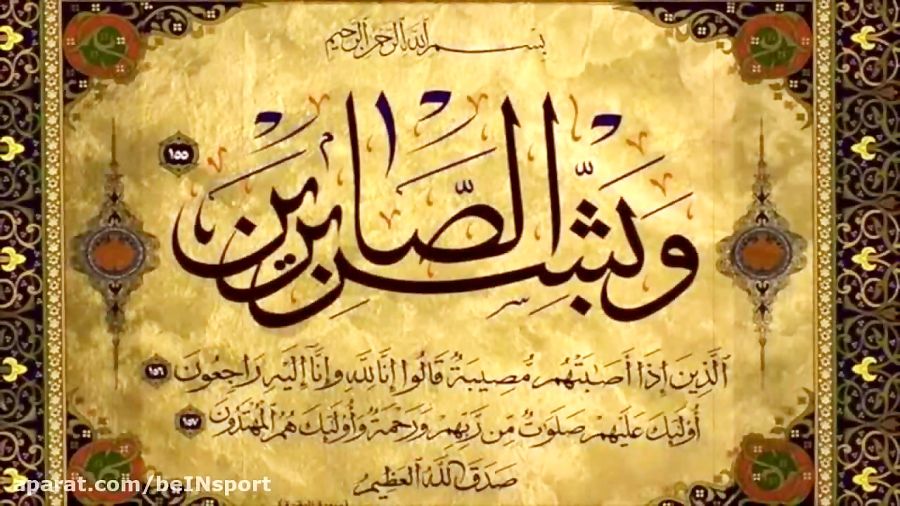 بِسْمِ اللهِ الرَّحْمٰنِ الرَّحِيمِ
وَبَشِّرِ الصَّابِرِينَ ١٥٥
ٱلَّذِينَ إِذَآ أَصَـٰبَتْهُم مُّصِيبَةٌ قَالُوٓا إِنَّا لِلَّهِ وَإِنَّآ إِلَيْهِ رَاجِعُونَ ١٥٦
أُوْلَـٰٓئِكَ عَلَيْهِمْ صَلَوَٰتٌ مِّن رَّبِّهِمْ وَرَحْمَةٌ وَأُوْلَـٰٓئِكَ هُمُ ٱلْمُهْتَدُونَ ١٥٧
صَدَقَ اللهُ العَظِيم
aparat.com/beINsport